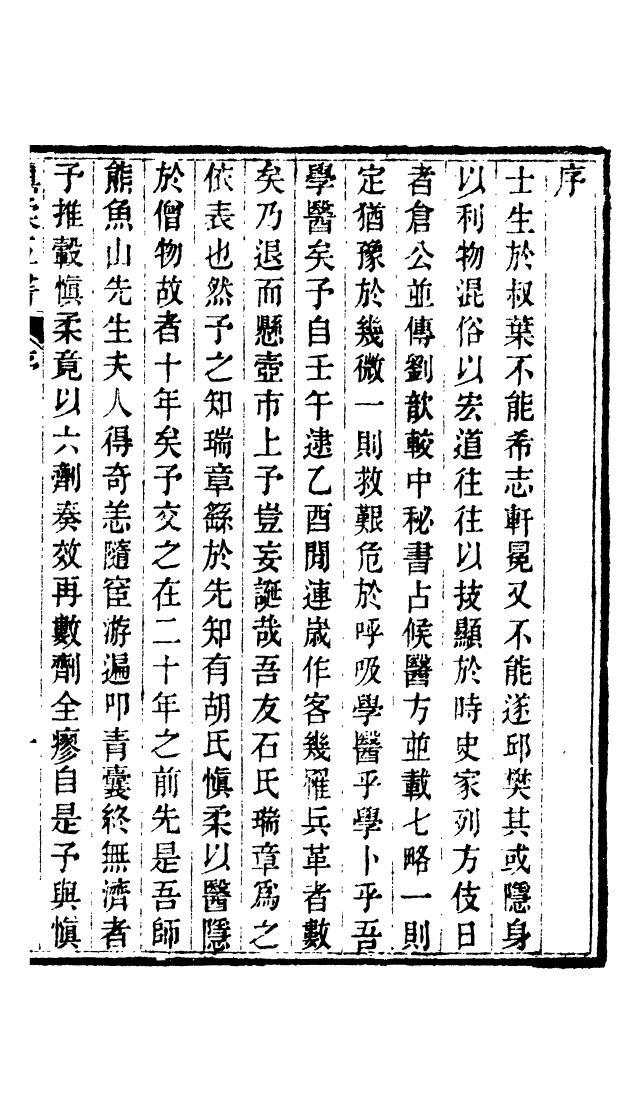 序
士生於叔葉不能希志軒冕又不能遂邱樊其或隱身
以利物混俗以宏道往往以技顯於時史家列方伎日
者倉公並傳劉歆較中秘書占候醫方並載七略一則
定猶豫於幾微一則救艱危於呼吸學醫乎學卜乎吾
學醫矣予自壬午逮乙酉閒連歲作客幾罹兵革者數
矣乃退而懸壺市上予豈妄誕哉吾友石氏瑞章為之
依表也然予之知瑞章繇於先知有胡氏愼柔以醫隱
於僧物故者十年矣予交之在二十年之前先是吾師
熊魚山先生夫人得奇恙隨宦游遍叩青囊終無濟者
予推轂愼柔竟以六劑奏效再數劑全瘳自是予與愼
序 一